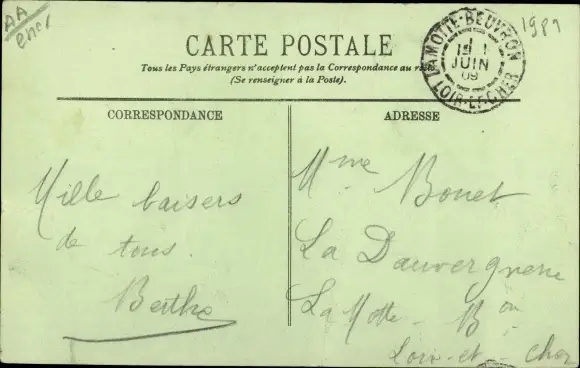 AA
enc/
1981
CARTE POSTALE
Tous les Pays étrangers n'acceptent pas la Correspondance au
(Se renseigner à la Poste).
LAMOTTE-BEUVRON
JUIN
09
LOIR-ET-CHER
CORRESPONDANCE
ADRESSE
Mille baisers
de tous.
Berthe
Mme Bouet
La Dauvergnerie
La Motte - Bon
Loir-et-Cher